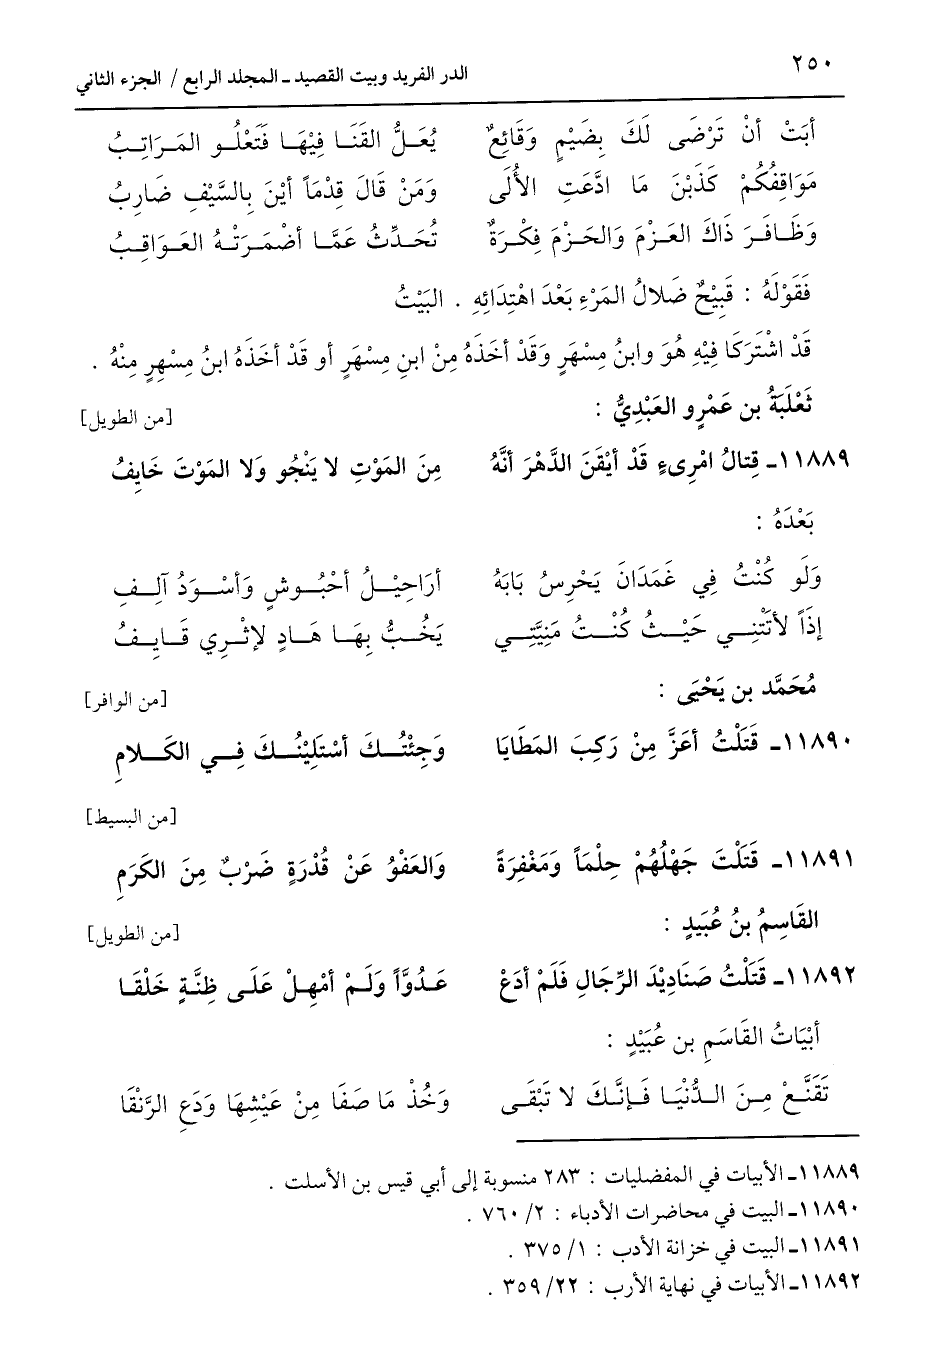 ٢٥٠
الدر الفريد وبيت القصيد ـ المجلد الرابع / الجزء الثاني
أَبَتْ أنْ تَرْضَى لَكَ بِضَيْمٍ وَقَائِعٌ يُعَلُّ القَنَا فِيْهَا فَتَعْلُو المَرَاتِبُ
مَوَاقِفُكُمْ كَذَبْنَ مَا ادَّعَتِ الأُلَى وَمَنْ قَالَ قِدْمَاً أيْنَ بِالسَّيْفِ ضَارِبُ
وَظَافَرَ ذَاكَ العَزْمَ وَالحَزْمَ فِكْرَةٌ تُحَدِّثُ عَمَّا أضْمَرَتْهُ العَوَاقِبُ
فَقَوْلَهُ : قَبِيْحٌ ضَلالُ المَرْءِ بَعْدَ اهْتِدَائِهِ . البَيْتُ
قَدْ اشْتَرَكَا فِيْهِ هُوَ وابنُ مِسْهَرٍ وَقَدْ أخَذَهُ مِنْ ابنِ مِسْهَرٍ أو قَدْ أخَذَهُ ابنُ مِسْهِرٍ مِنْهُ .
ثَعْلَبَةُ بن عَمْرٍو العَبْدِيُّ : [من الطويل]
١١٨٨٩ـ قِتالُ امْرِىءٍ قَدْ أيْقَنَ الدَّهْرَ أنَّهُ مِنَ المَوْتِ لا يَنْجُو وَلا المَوْتَ خَايِفُ
بَعْدَهُ :
وَلَو كُنْتُ فِي غَمَدَانَ يَحْرِسُ بَابَهُ أرَاجِيْلُ أحْبُوشٍ وَأسْوَدُ آلِفِ
إذَاً لأتَتْنِي حَيْثُ كُنْتُ مَنِيَّتِي يَخُبُّ بِهَا هَادٍ لإثْرِي قَايِفُ
مُحَمَّد بن يَحْيَى : [من الوافر]
١١٨٩٠ـ قَتَلْتُ أعَزَّ مِنْ رَكِبَ المَطَايَا وَجِئْتُكَ أسْتَلِيْنُكَ فِي الكَلامِ
[من البسيط]
١١٨٩١ـ قَتَلْتَ جَهْلَهُمْ حِلْمَاً وَمَغْفِرَةً وَالعَفْوُ عَنْ قُدْرَةٍ ضَرْبٌ مِنَ الكَرَمِ
القَاسِمُ بنُ عُبَيدٍ : [من الطويل]
١١٨٩٢ـ قَتَلْتُ صَنَادِيْدَ الرِّجَالِ فَلَمْ أدَعْ عَدُوَّاً وَلَمْ أمْهِلْ عَلَى ظِنَّةٍ خَلْقَا
أبْيَاتُ القَاسَمِ بن عُبَيْدٍ :
تَقَنَّعْ مِنَ الدُّنْيَا فَإنَّكَ لا تَبْقَى وَخُذْ مَا صَفَا مِنْ عَيْشِهَا وَدَعِ الرَّنْقَا
١١٨٨٩ـ الأبيات في المفضليات : ٢٨٣ منسوبة إلى أبي قيس بن الأسلت .
١١٨٩٠ـ البيت في محاضرات الأدباء : ٢/ ٧٦٠ .
١١٨٩١ـ البيت في خزانة الأدب : ١/ ٣٧٥ .
١١٨٩٢ـ الأبيات في نهاية الأرب : ٢٢/ ٣٥٩ .